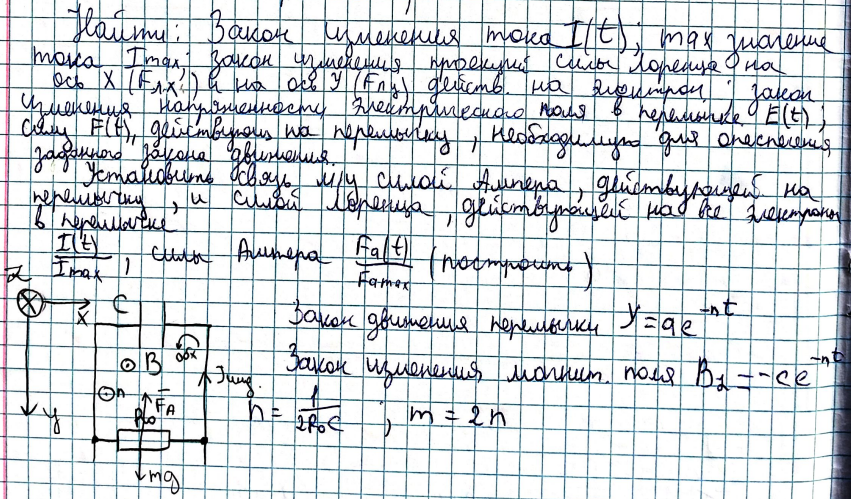 Найти: Закон изменения тока I(t); max значение
тока Imax; закон изменения проекций силы Лоренца на
ось X (Fлx) и на ось У (Fлу) действ. на электрон; закон
изменения напряженности электрического поля в перемычке E(t);
силу F(t), действующ на перемычку, необходимую для опеспечения
заданного закона движения.
Установить связь м/у силой Ампера, действующей на
перемычку, и силой Лоренца, действующей на все электроны
в перемычке
I(t)/Imax ; силы Ампера Fa(t)/Famax (построить)
Z X C
Закон движения перемычки У=ae^-nt
B обх
Закон изменения магнит. поля Bz=-ce^-nt
n Iинд.
n = 1/2R₀C ; m = 2n
y R₀ FA
mg